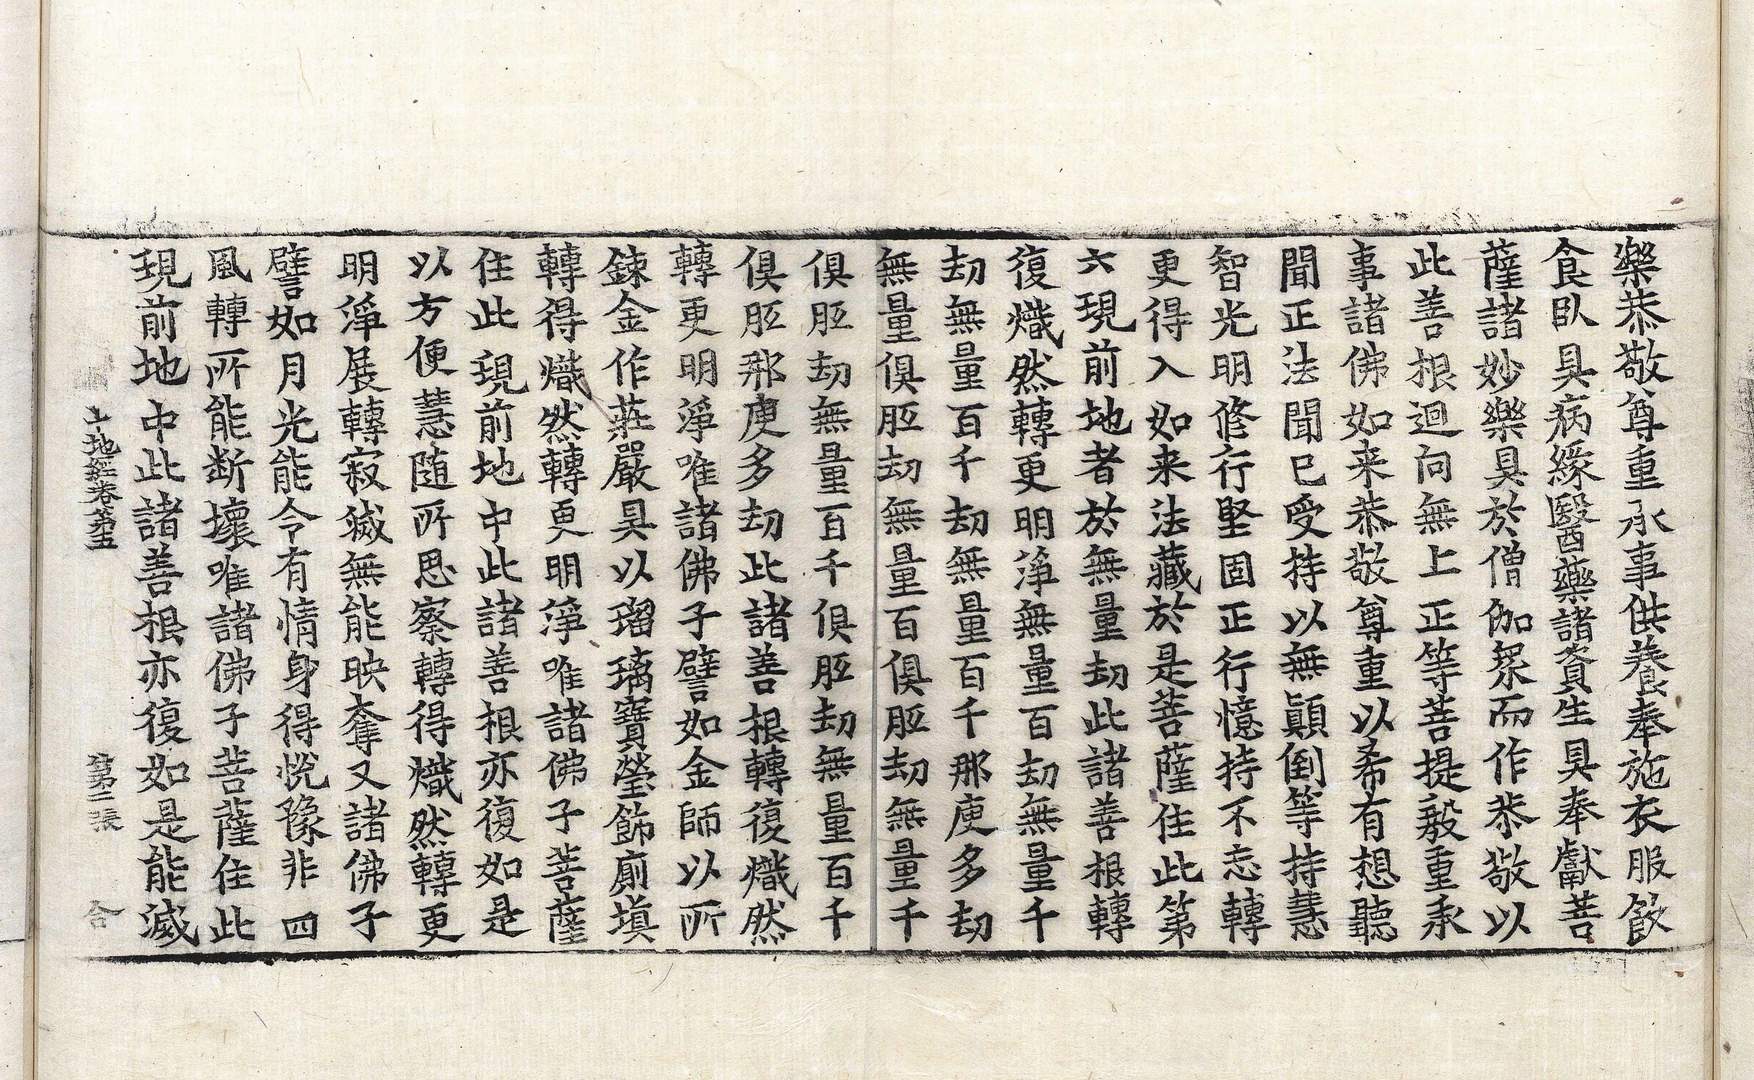 樂恭敬尊重承事供養奉施衣服飲
食臥具病緣醫藥諸資生具奉獻菩
薩諸妙樂具於僧伽眾而作恭敬以
此善根迴向無上正等菩提殷重承
事諸佛如来恭敬尊重以希有想聽
聞正法聞已受持以無顛倒等持慧
智光明修行堅固正行憶持不忘轉
更得入如来法藏於是菩薩住此第
六現前地者於無量劫此諸善根轉
復熾然轉更明淨無量百劫無量千
劫無量百千劫無量百千那庾多劫
無量俱胝劫無量百俱胝劫無量千
俱胝劫無量百千俱胝劫無量百千
俱胝那庾多劫此諸善根轉復熾然
轉更明淨唯諸佛子譬如金師以所
鍊金作莊嚴具以瑠璃寶瑩飾廁填
轉得熾然轉更明淨唯諸佛子菩薩
住此現前地中此諸善根亦復如是
以方便慧随所思察轉得熾然轉更
明淨展轉寂滅無能映奪又諸佛子
譬如月光能令有情身得悅豫非四
風轉所能断壞唯諸佛子菩薩住此
現前地中此諸善根亦復如是能滅
十地經卷第五 第二張 合